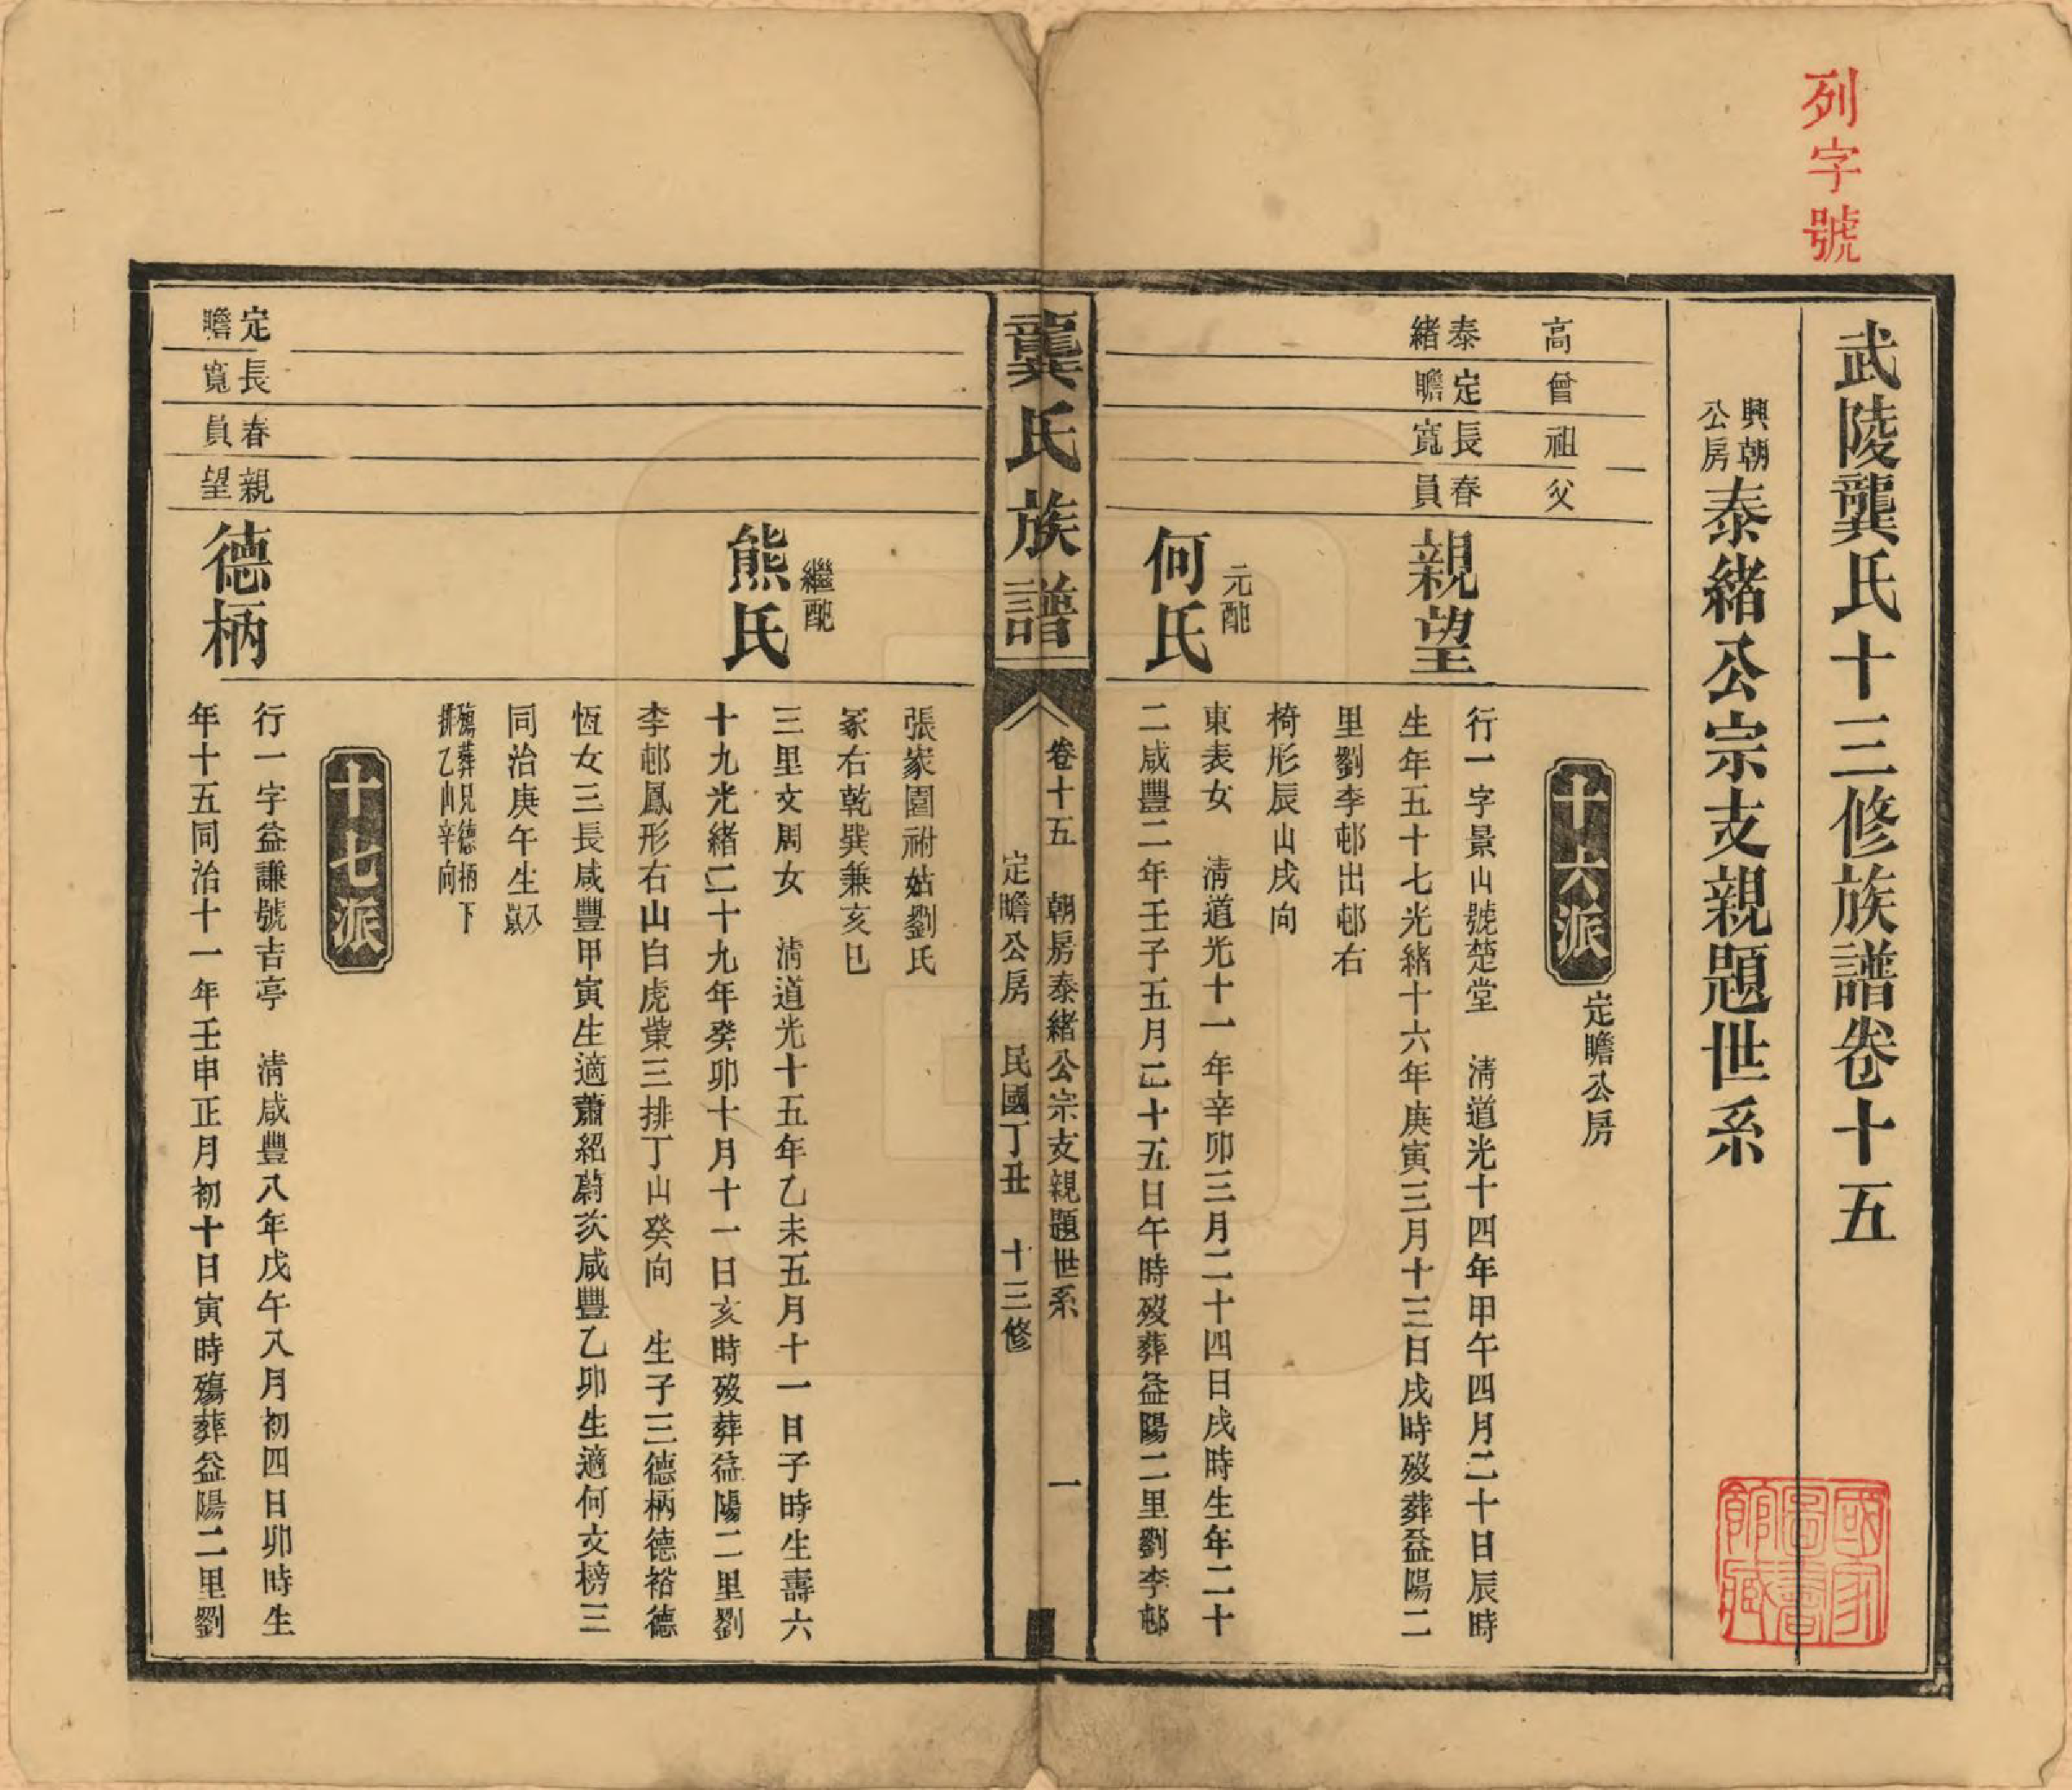 列字號
武陵龔氏十三修族譜卷十五
興朝
公房
泰緒公宗支親題世系
國家圖書館藏
高
曾
祖
父
十六派
定瞻公房
泰緒
定瞻
長寬
春員
親望
行一字景山號楚堂　清道光十四年甲午四月二十日辰時
生年五十七光緒十六年庚寅三月十三日戌時歿葬益陽二
里劉李邨出邨右
椅形辰山戌向
元配
何氏
東表女　清道光十一年辛卯三月二十四日戌時生年二十
二咸豐二年壬子五月二十五日午時歿葬益陽二里劉李邨
龔氏族譜
卷十五　朝房泰緒公宗支親題世系　一
定瞻公房　民國丁丑　十三修
張家園祔姑劉氏
冢右乾巽兼亥巳
繼配
熊氏
三里文周女　清道光十五年乙未五月十一日子時生壽六
十九光緒二十九年癸卯十月十一日亥時歿葬益陽二里劉
李邨鳳形右山白虎塋三排丁山癸向　生子三德柄德裕德
恆女三長咸豐甲寅生適蕭紹蔚次咸豐乙卯生適何文榜三
同治庚午生八歲
殤葬兄德柄下
排乙山辛向
十七派
定瞻
長寬
春員
親望
德柄
行一字益謙號吉亭　清咸豐八年戊午八月初四日卯時生
年十五同治十一年壬申正月初十日寅時殤葬益陽二里劉